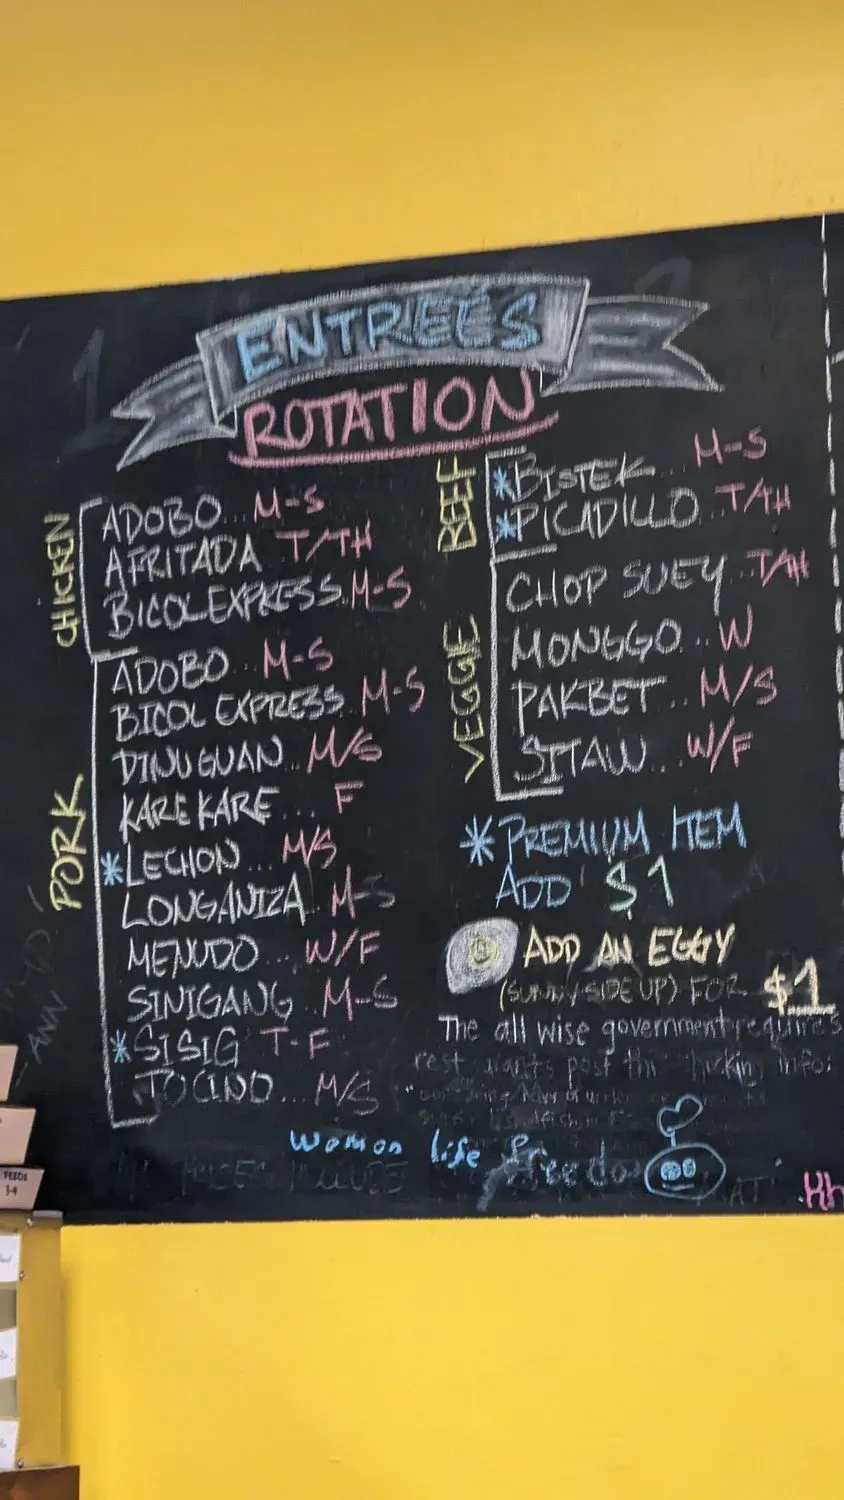 ENTREÉS
ROTATION
CHICKEN
ADOBO... M-S
AFRITADA T/TH
BICOL EXPRESS.. M-S
PORK
ADOBO... M-S
BICOL EXPRESS.. M-S
DINUGUAN.. M/S
KARE KARE.... F
*LECHON... M/S
LONGANIZA.. M-S
MENUDO... W/F
SINIGANG.. M-S
*SISIG T-F
TOCINO... M/S
BEEF
*BISTEK... M-S
*PICADILLO.. T/TH
VEGGIE
CHOP SUEY.. T/TH
MONGGO... W
PAKBET... M/S
SITAW... W/F
*PREMIUM ITEM
ADD $1
ADD AN EGGY
(SUNNY SIDE UP) FOR $1
The all wise government requires
post this info:
woman life freedom
FEEDS
3-4